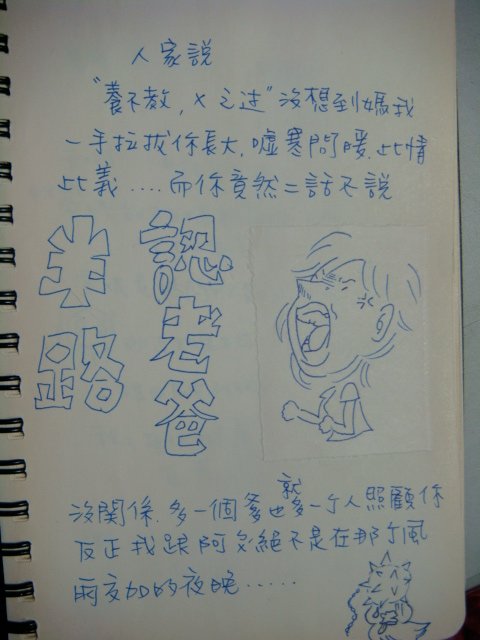 人家說
"養不教，父之过" 沒想到媽我
一手拉拔你長大，噓寒問暖，此情
此義....而你竟然二話不說
半路
認老爸
沒關係，多一個爹也就多一个人照顧你
反正我跟阿爻絕不是在那个風
雨交加的夜晚.....